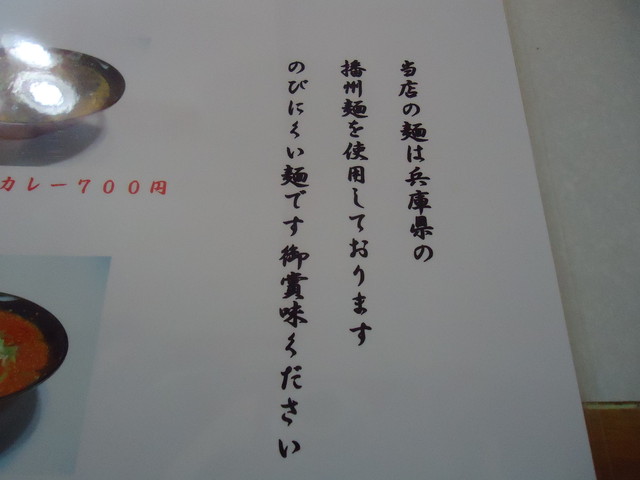 当店の麺は兵庫県の
播州麺を使用しております
のびにくい麺です御賞味ください
カレー７００円